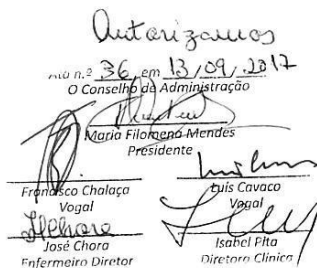 Autorizamos
n.º 36 em 13/09/2017
O Conselho de Administração
Maria Filomena Mendes
Presidente
Francisco Chalaça
Vogal
Luís Cavaco
Vogal
José Chora
Enfermeiro Diretor
Isabel Pita
Diretora Clínica